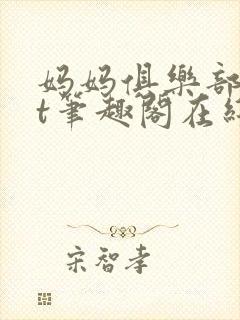 妈妈俱樂部
t筆趣閣在
宋智孝